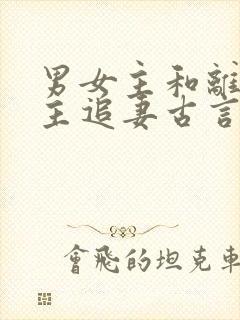 男女主和離
主追妻古言
會飛的坦克車